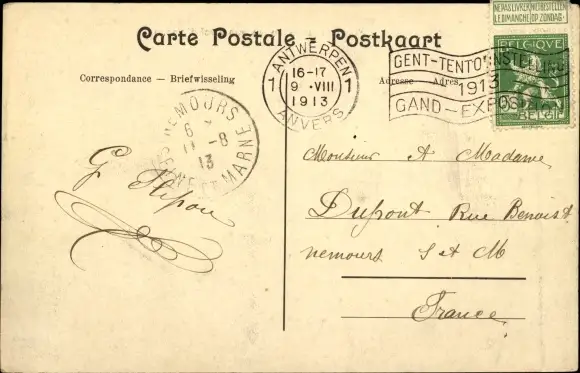 NE PAS LIVRER NIET BESTELLEN
LE DIMANCHE OP ZONDAG
Carte Postale - Postkaart
BELGIQUE
ANTWERPEN
1 16-17 1
9 ·VIII
1913
ANVERS
GENT-TENTOONSTELLING
1913
GAND-EXPOSITION
BELGIË
Correspondance — Briefwisseling
Adresse — Adres
NEMOURS
11-8
13
SEINE ET MARNE
Monsieur & Madame
G
Dupont Rue Benoist
nemours S et M
France